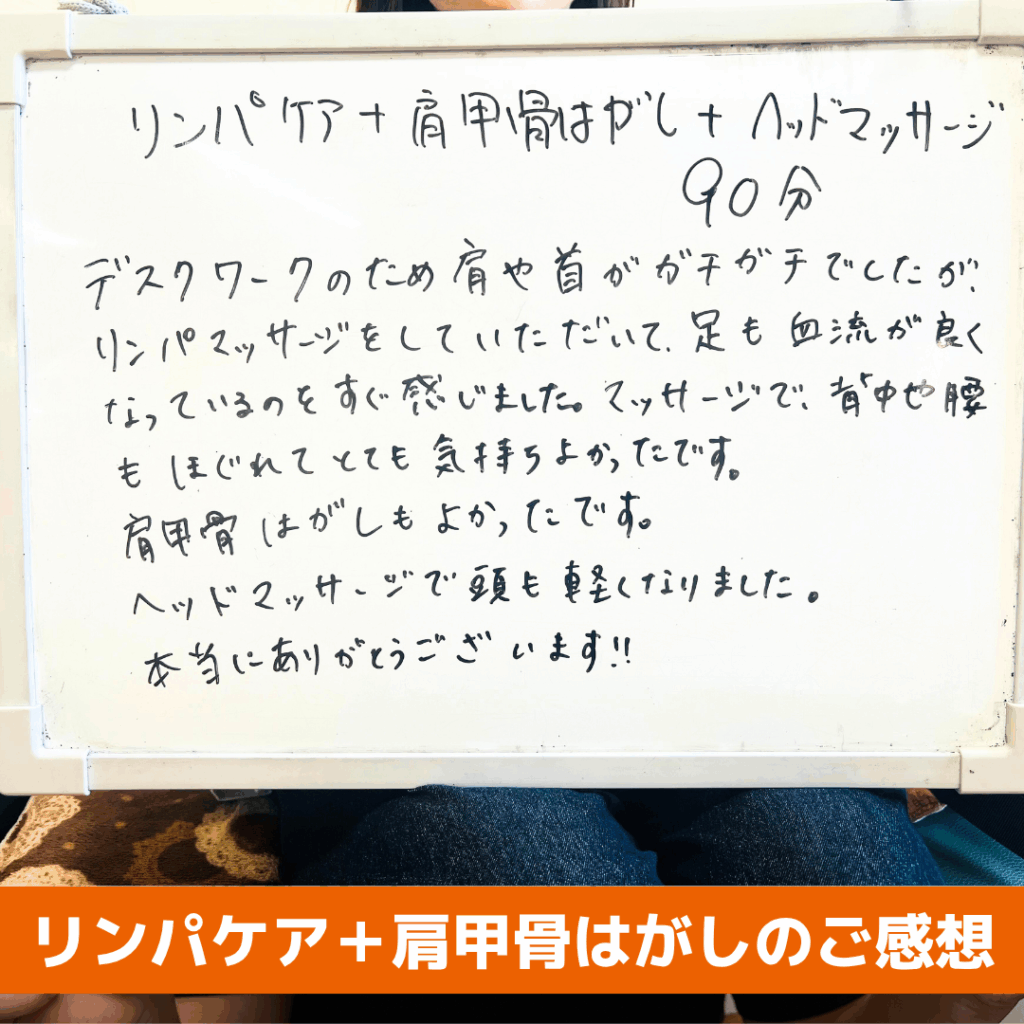 リンパケア+肩甲骨はがし+ヘッドマッサージ
90分
デスクワークのため肩や首がガチガチでしたが、
リンパマッサージをしていただいて、足も血流が良く
なっているのをすぐ感じました。マッサージで、背中や腰
もほぐれてとても気持ちよかったです。
肩甲骨はがしもよかったです。
ヘッドマッサージで頭も軽くなりました。
本当にありがとうございます!!
リンパケア+肩甲骨はがしのご感想